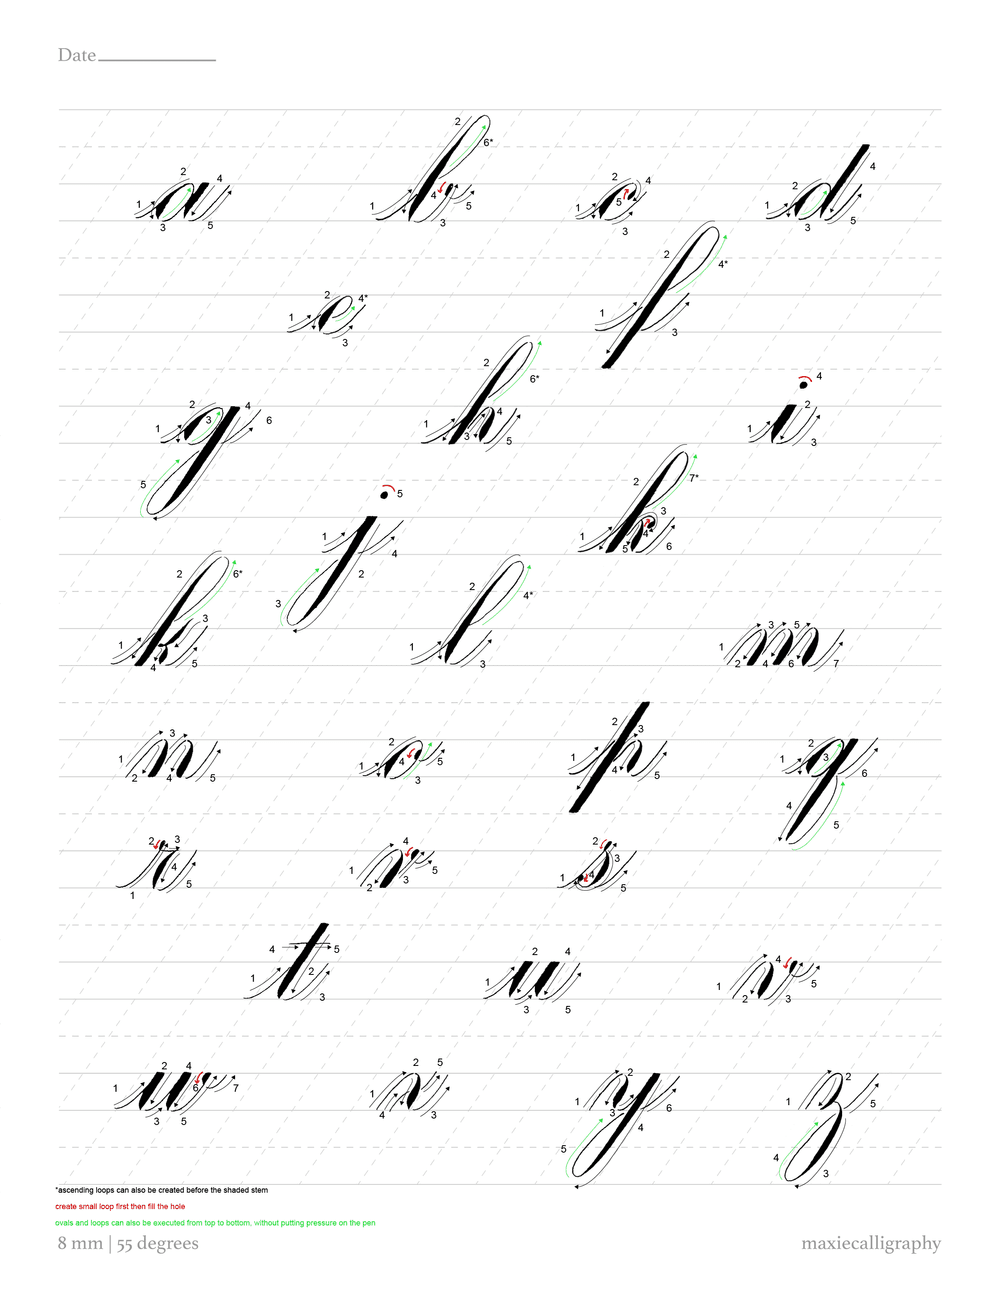 Date
a b c d
e f
g h i
j k
k l m
n o p q
r r s
t u v
w x y z
*ascending loops can also be created before the shaded stem
create small loop first then fill the hole
ovals and loops can also be executed from top to bottom, without putting pressure on the pen
8 mm | 55 degrees
maxiecalligraphy